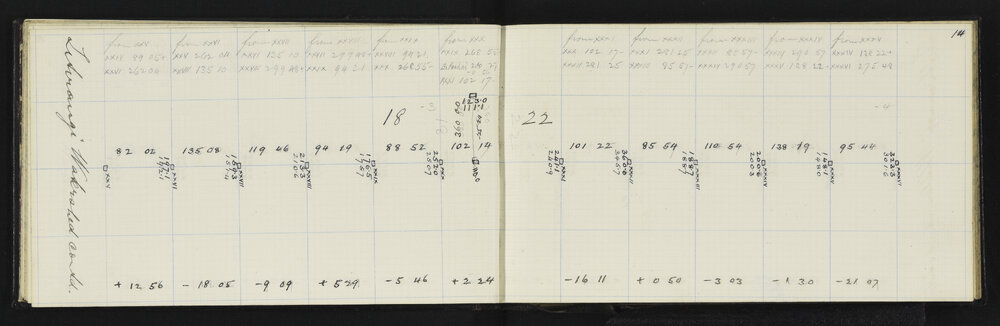 14
Watershed contd.
from XXV
XXIV 89 05
XXVI 262 04
from XXVI
XXV 262 04
XXVII 135 10
from XXVII
XXVI 135 10
XXVIII 299 48+
from XXVIII
XXVII 299 48+
XXIX 94 21
from XXIX
XXVIII 94 21
XXX 268 55-
from XXX
XXIX 268 55-
XXXI 102 17-
from XXXI
XXX 102 17-
XXXII 281 25
from XXXII
XXXI 281 25
XXXIII 85 57-
from XXXIII
XXXII 85 57-
XXXIV 290 57
from XXXIV
XXXIII 290 57
XXXV 128 22+
from XXXV
XXXIV 128 22+
XXXVI 275 48
18
-3
22
-4
1230
1111
82 02
135 08
119 46
94 19
88 52
102 14
101 22
85 54
110 54
138 19
95 44
XXV
XXVI
XXVII
1593
1574
XXVIII
2153
2106
XXIX
1765
1757
2520
2507
XXX
XXXI
2471
2409
XXXII
3606
3457
XXXIII
1887
1887
XXXIV
2006
2003
XXXV
1481
1480
XXXVI
3233
3016
+ 12 56
- 18 05
-9 09
+ 5 29
-5 46
+2 24
-16 11
+ 0 50
-3 03
-1 30
-21 07